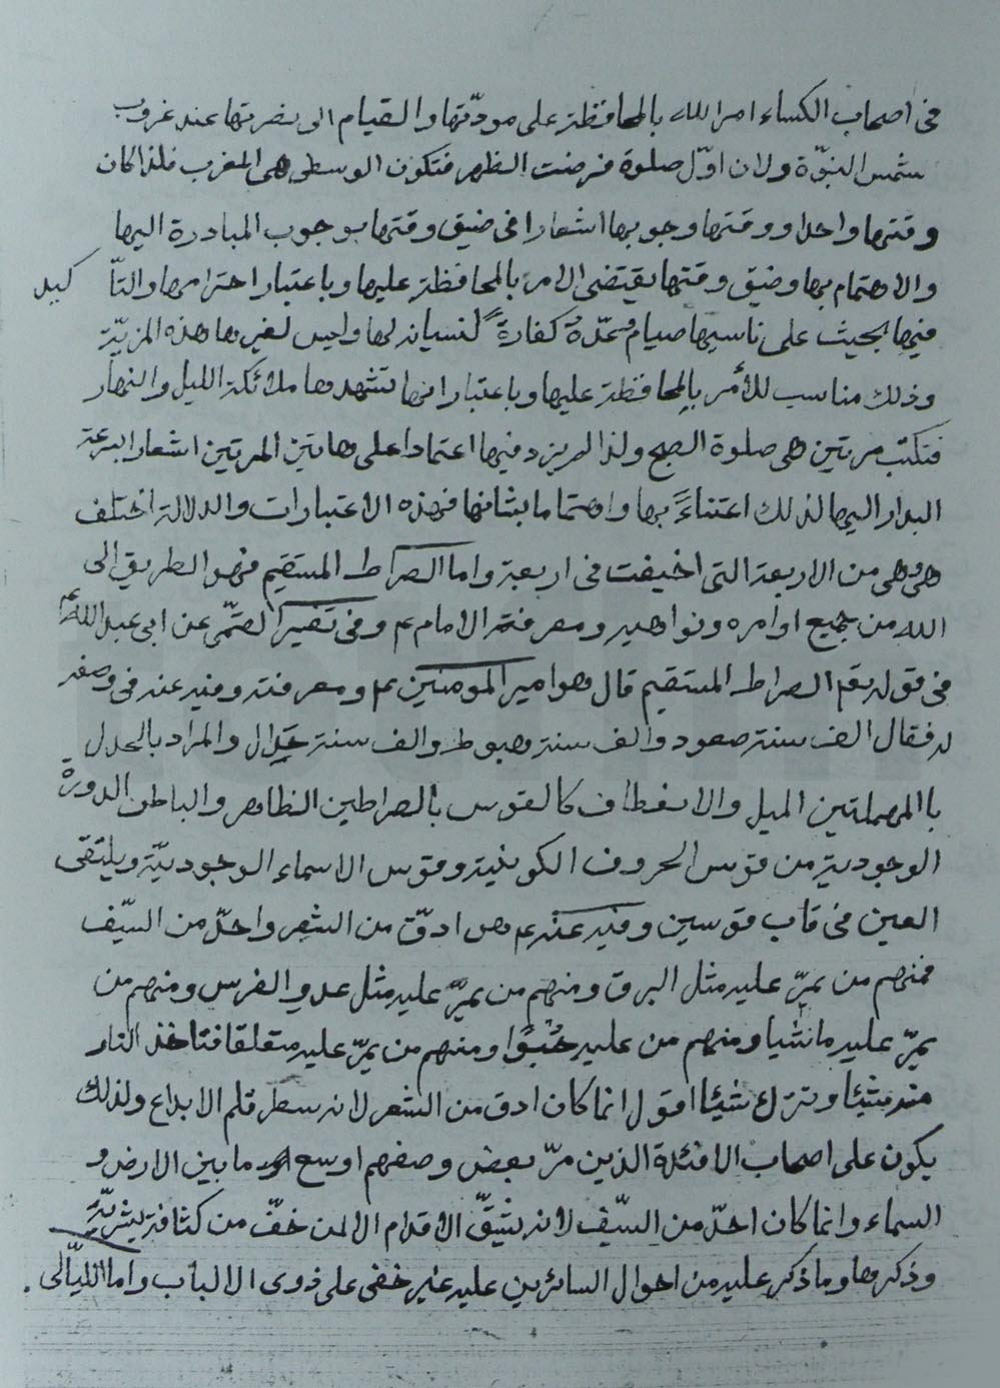 فى اصحاب الكساء امر الله بالمحافظة على مودّتها والقيام الى نصرتها عند غروب
شمس النبوّة ولان اوّل صلوة فرضت الظهر فتكون الوسطى هى المغرب فلذا كان
وقتها واحدا ووقتها وجوبها اشعارا فى ضيق وقتها بوجوب المبادرة اليها
والاهتمام بها وضيق وقتها يقتضى الامر بالمحافظة عليها وباعتبار احترامها والتأكيد
فيها بحيث على ناسيها صيام كفارةً لنسيانه لها وليس لغيرها هذه المزيّة
وذلك مناسب للأمر بالمحافظة عليها وباعتبار انها تشهدها ملائكة الليل والنهار
فتكتب مرتين هى صلوة الصبح ولذا لم يزد فيها اعتمادا على هاتين المرتين اشعارا بسرعة
البدار اليها لذلك اعتناءً بها واهتماما بشانها فهذه الاعتبارات والدلالة اختلف
هى وهى من الاربعة التى اخفيت فى اربعة واما الصراط المستقيم فهو الطريق الى
الله من جميع اوامره ونواهيه ومعرفة الامام ع م وفى تفسير القمّى عن ابى عبد الله ع م
فى قوله تعم الصراط المستقيم قال هو امير المومنين ع م ومعرفته وفيه عنه فى وصفه
له فقال الف سنة صعود والف سنة هبوط والف سنة حدال والمراد بالحدال
باالمهملتين الميل والانعطاف كالقوس بالصراطين الظاهر والباطن الدورة
الوجودية من قوس الحروف الكونية وقوس الاسماء الوجوديّة ويلتقى
العين فى قاب قوسين وفيه عنه ع م هى ادقّ من الشعر واحدّ من السيّف
فمنهم من يمرّ عليه مثل البرق ومنهم من يمرّ عليه مثل عدو الفرس ومنهم من
يمرّ عليه ماشيا ومنهم من عليه حبوًا ومنهم من يمرّ عليه متعلقا فتاخذ النار
منه شيئا وتترك شيئا اقول انما كان ادق من الشعر لانه سطر قلم الابداع ولذلك
يكون على اصحاب الافئدة الذين مرّ بعض وصفهم اوسع مما بين الارض و
السماء وانما كان احدّ من السيّف لانه يشقّ الاقدام الا لمن خفّ من كثافة بشريّته
وذكرها وما ذكر عليه من احوال السائرين عليه غير خفى على ذوى الالباب واما الليّالى